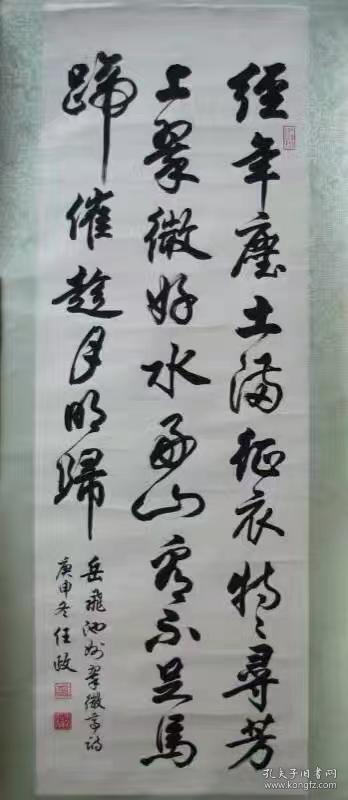 經年塵土滿征衣特〻尋芳
上翠微好水好山看不足馬
蹄催趁月明歸
岳飛池州翠微亭詩
庚申冬任政
孔夫子旧书网
www.kongfz.com